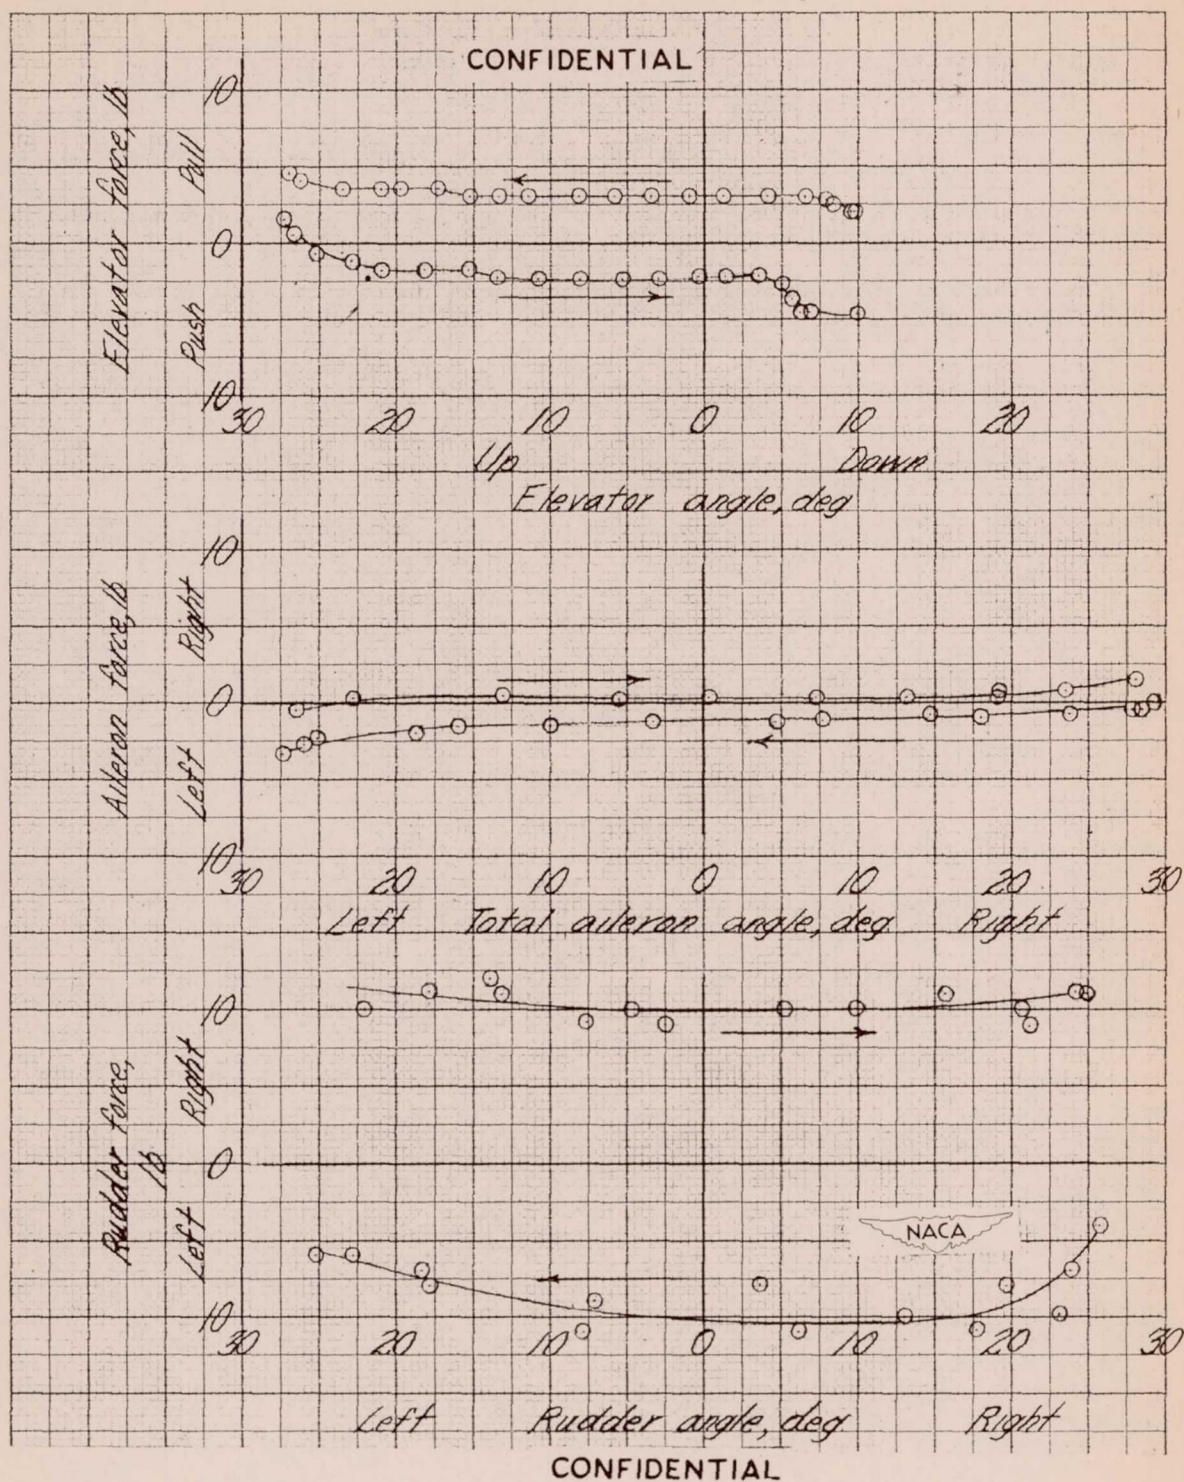 CONFIDENTIAL
Elevator force, lb
Push Pull
10
0
10
30 20 10 0 10 20
Up Down
Elevator angle, deg
Aileron force, lb
Left Right
10
0
10
30 20 10 0 10 20 30
Left Total aileron angle, deg Right
Rudder force,
lb
Left Right
10
0
10
NACA
30 20 10 0 10 20 30
Left Rudder angle, deg Right
CONFIDENTIAL